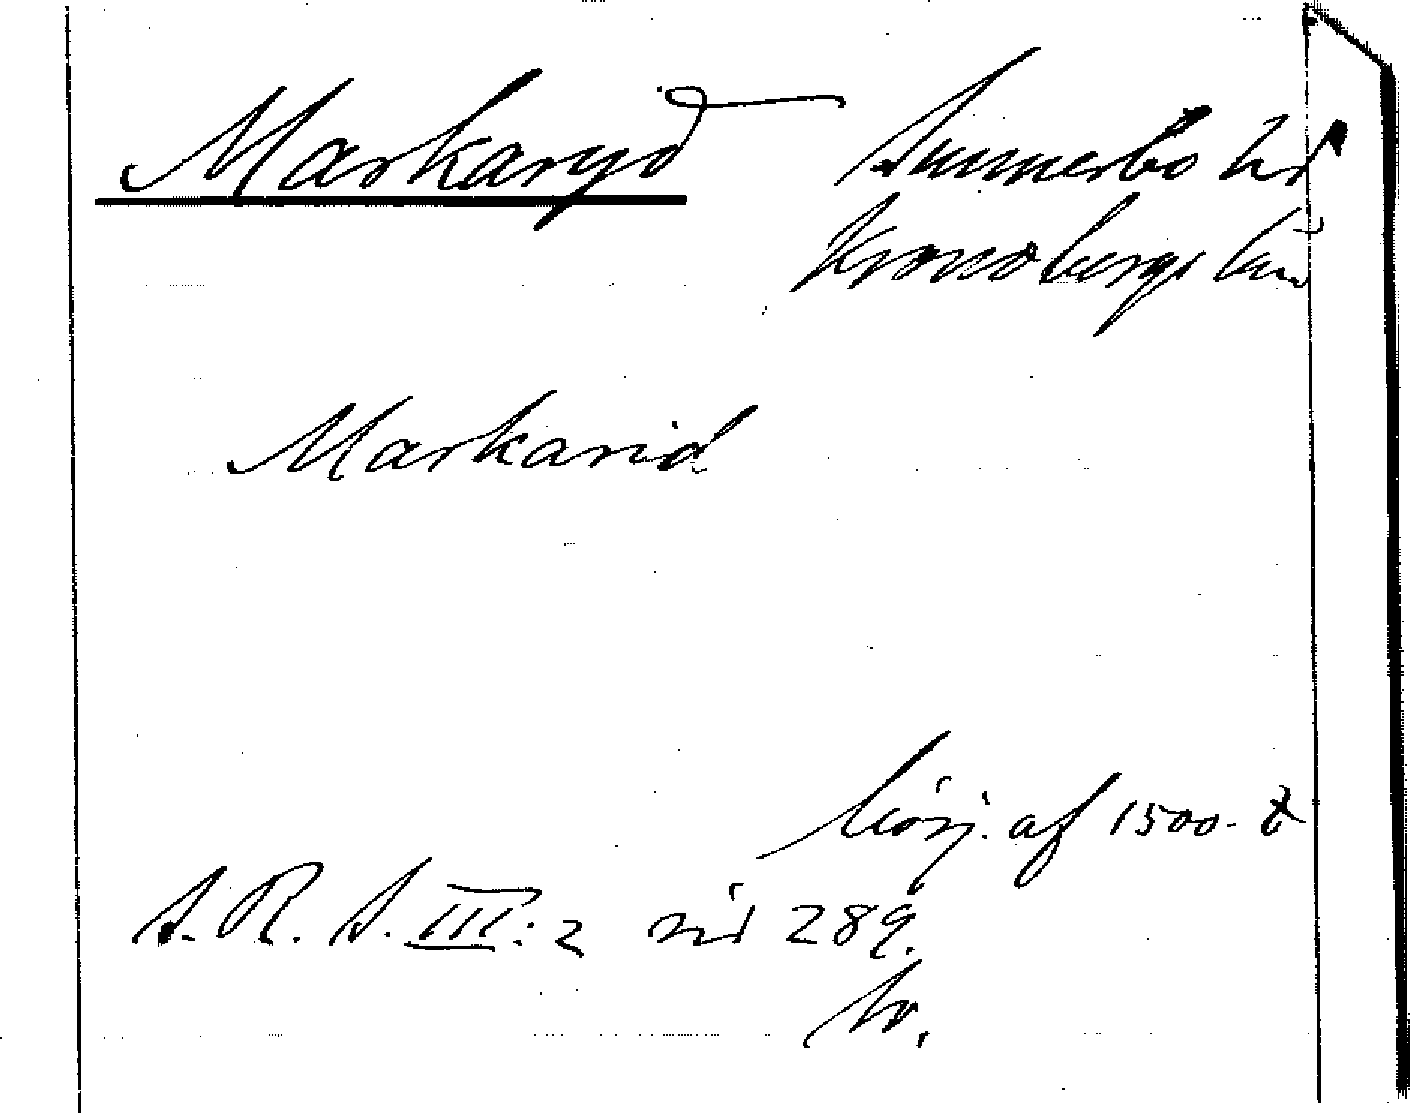 Markaryd Sunnerbo hd
Kronobergs län
Markarid
börj. af 1500-t
S. R. S. III: 2 sid 289.
tr.